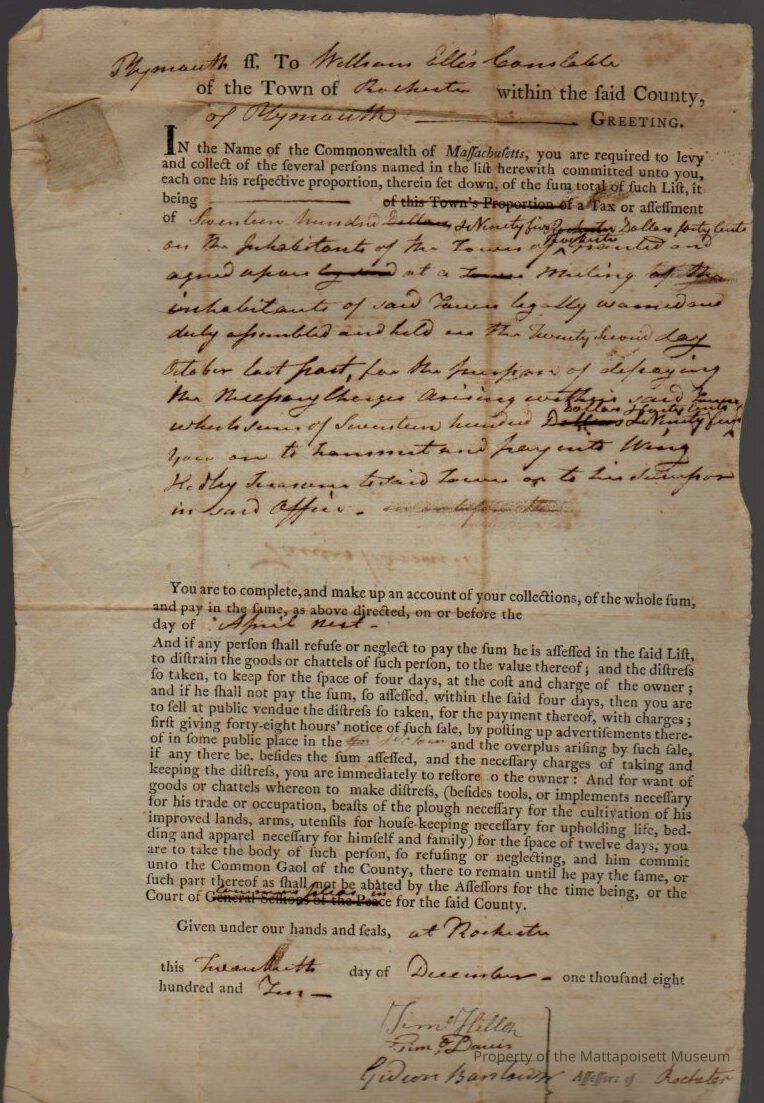 Plymouth ſſ. To William Ellis Constable
of the Town of Rochester within the ſaid County,
of Plymouth GREETING.
IN the Name of the Commonwealth of Maſſachuſetts, you are required to levy
and collect of the ſeveral perſons named in the liſt herewith committed unto you,
each one his reſpective proportion, therein ſet down, of the ſum total of ſuch Liſt, it
being of this Town's Proportion of a Tax or aſſeſſment
of Seventeen hundred Dollars & Ninety five Dollars forty Cents
on the Inhabitants of the Town of Rochester granted and
agreed upon at a Meeting of the
inhabitants of said Town legally warned and
duly assembled and held on the Twenty Second day
October last past, for the purpose of defraying
the Necessary Charges arising within said Town
which sum of Seventeen hundred Dollars & Ninety five
Dollars & forty Cents
you are to transmit and pay unto Wing
Hadley Treasurer to said Town or to his Successor
in said Office.
You are to complete, and make up an account of your collections, of the whole ſum,
and pay in the ſame, as above directed, on or before the
day of April next
And if any perſon ſhall refuſe or neglect to pay the ſum he is aſſeſſed in the ſaid Liſt,
to diſtrain the goods or chattels of ſuch perſon, to the value thereof; and the diſtreſs
ſo taken, to keep for the ſpace of four days, at the coſt and charge of the owner;
and if he ſhall not pay the ſum, ſo aſſeſſed, within the ſaid four days, then you are
to ſell at public vendue the diſtreſs ſo taken, for the payment thereof, with charges;
firſt giving forty-eight hours' notice of ſuch ſale, by poſting up advertiſements there-
of in ſome public place in the and the overplus ariſing by ſuch ſale,
if any there be, beſides the ſum aſſeſſed, and the neceſſary charges of taking and
keeping the diſtreſs, you are immediately to reſtore o the owner: And for want of
goods or chattels whereon to make diſtreſs, (beſides tools, or implements neceſſary
for his trade or occupation, beaſts of the plough neceſſary for the cultivation of his
improved lands, arms, utenſils for houſe-keeping neceſſary for upholding life, bed-
ding and apparel neceſſary for himſelf and family) for the ſpace of twelve days, you
are to take the body of ſuch perſon, ſo refuſing or neglecting, and him commit
unto the Common Gaol of the County, there to remain until he pay the ſame, or
ſuch part thereof as ſhall not be abated by the Aſſeſſors for the time being, or the
common pleas in
Court of General Seſſions of the Peace for the ſaid County.
Given under our hands and ſeals, at Rochester
this Twentieth day of December one thouſand eight
hundred and Ten
Tim.o Hiller
Tim.o Davis
Gideon Barstow Aſſeſſors of Rochester
Property of the Mattapoisett Museum